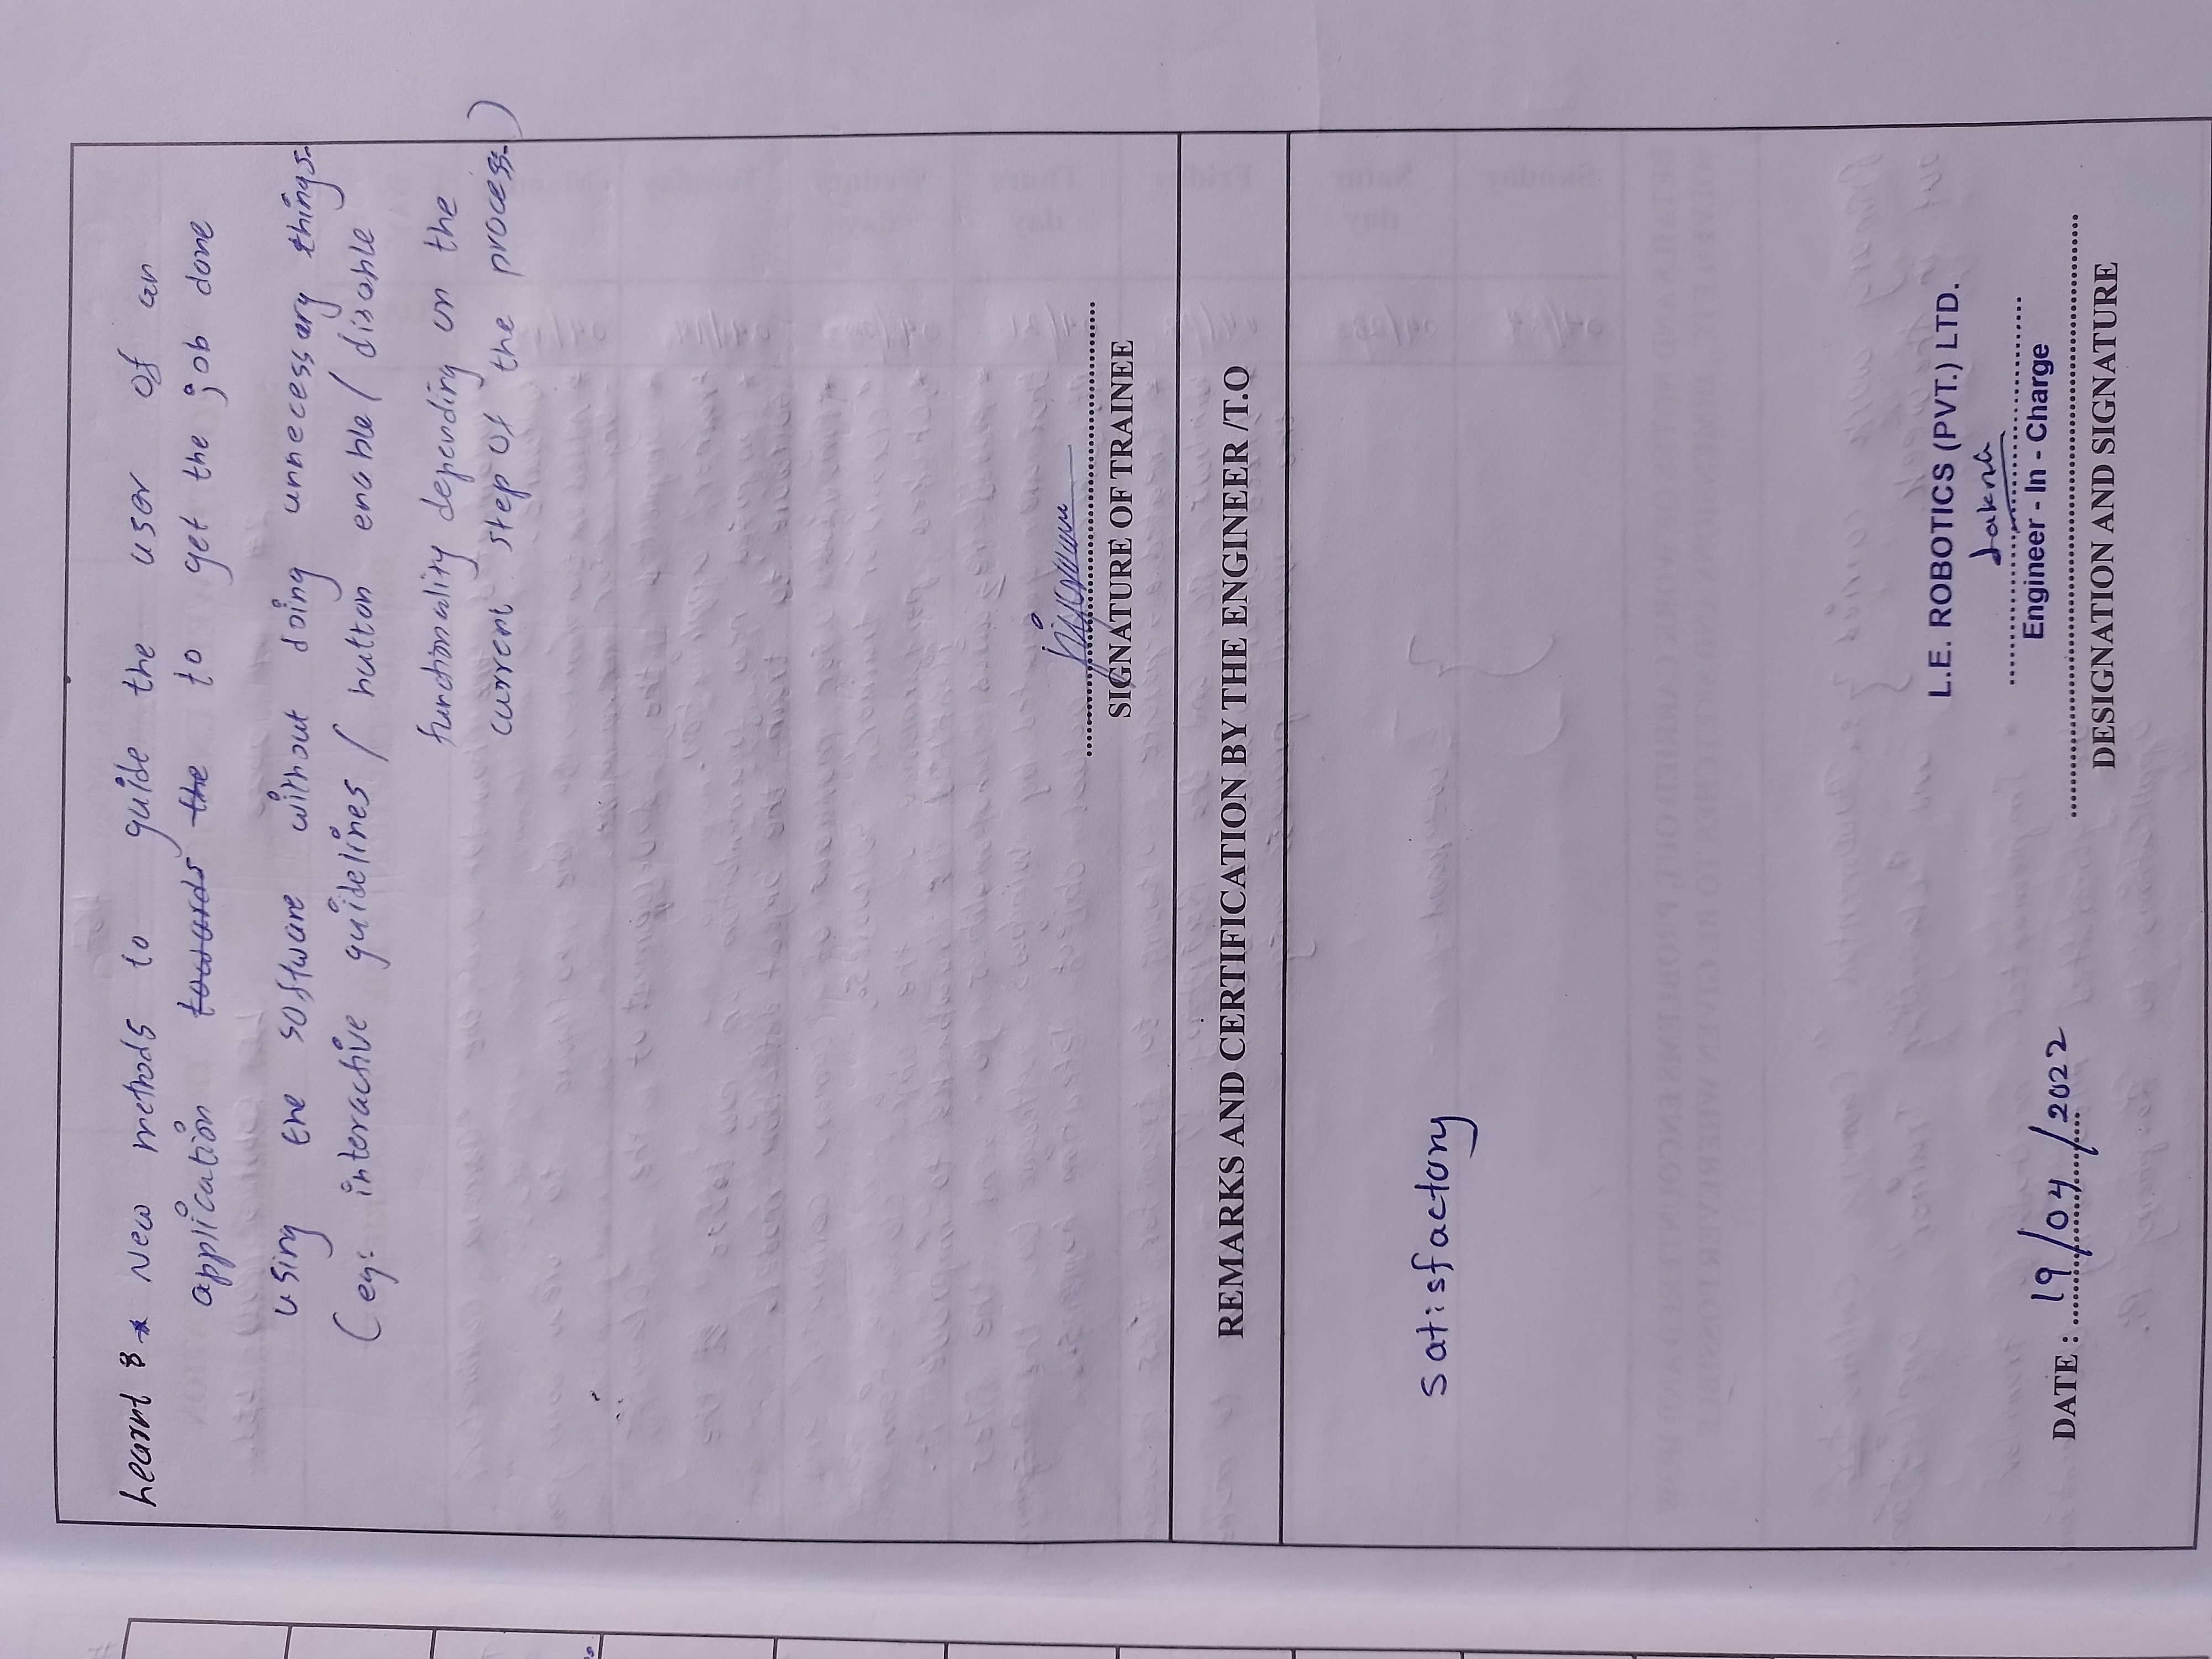 Learnt : * New methods to guide the user of an
application towards the to get the job done
using the software without doing unnecessary things.
(eg: interactive guidelines / button enable / disable
functionality depending on the
current step of the process.)
SIGNATURE OF TRAINEE
REMARKS AND CERTIFICATION BY THE ENGINEER /T.O
Satisfactory
L.E. ROBOTICS (PVT.) LTD.
Engineer - In - Charge
DATE : 19/04/2022
DESIGNATION AND SIGNATURE